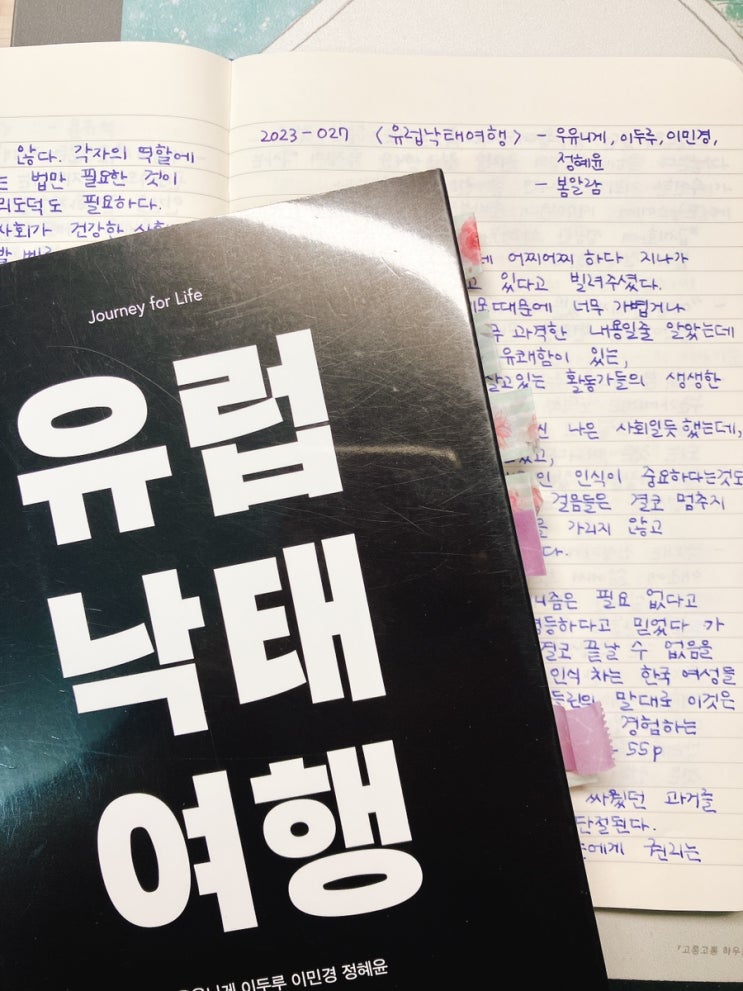 않다. 각자의 역할에
는 법만 필요한 것이
리도덕도 필요하다.
사회가 건강한
2023-027 <유럽낙태여행> - 우유니게, 이두루, 이민경,
정혜윤
- 봄알람
어찌어찌 하다 지나가
고 있다고 빌려주셨다.
때문에 너무 가볍거나
과격한 내용일줄 알았는데
유쾌함이 있는,
살고있는 활동가들의 생생한
나은 사회일듯 했는데,
인식이 중요하다는것도
걸음들은 결코 멈추지
를 가리지 않고
다.
니즘은 필요 없다고
평등하다고 믿었다 가
결코 끝날 수 없음을
인식 차는 한국 여성을
말대로 이것은
경험하는
- 55p
싸웠던 과거를
단절된다.
에게 권리는
Journey for Life
유럽
낙태
여행
우유니게 이두루 이민경 정혜윤
『고롱고롱 하우